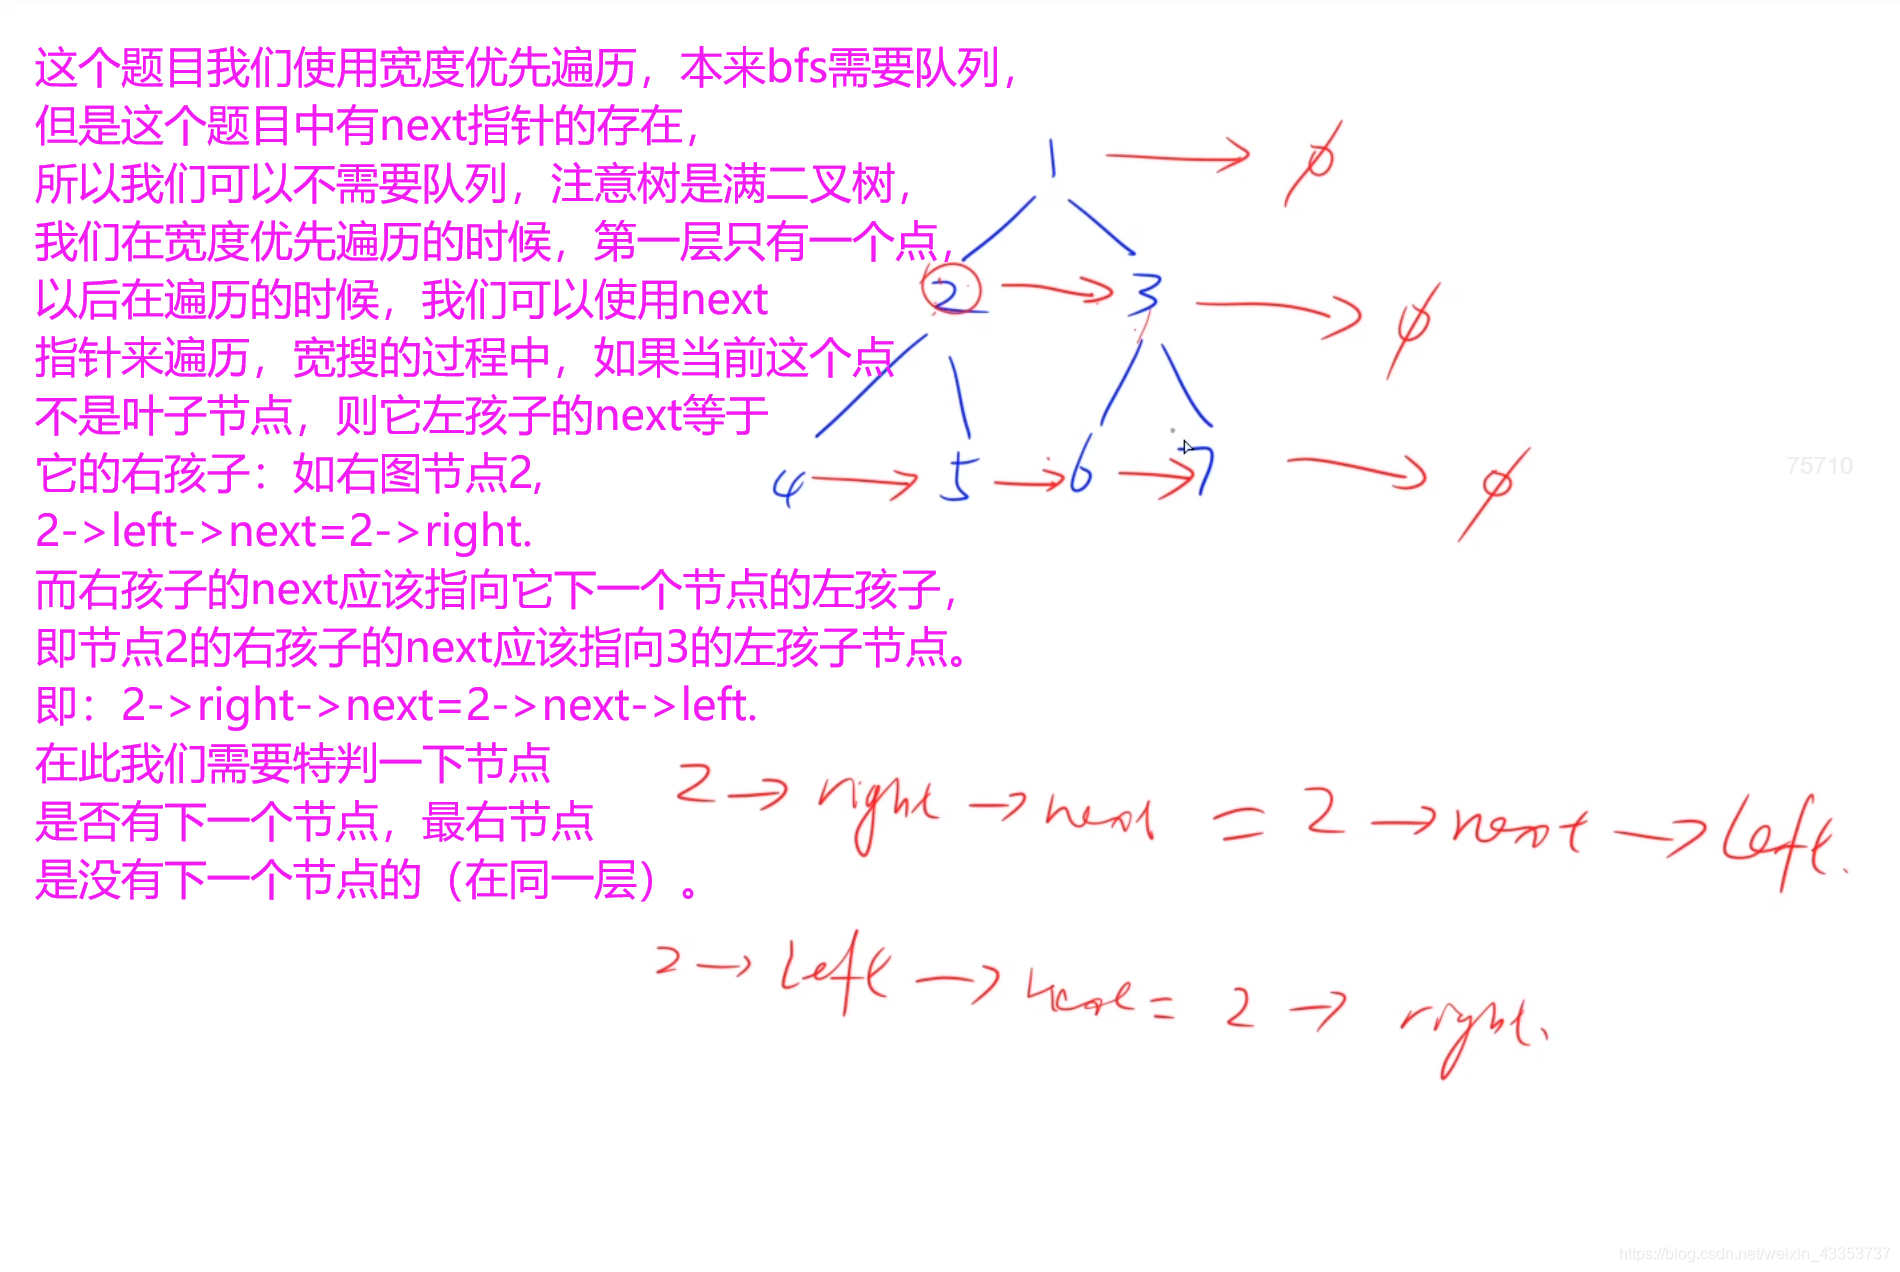 这个题目我们使用宽度优先遍历，本来bfs需要队列，
但是这个题目中有next指针的存在，
所以我们可以不需要队列，注意树是满二叉树，
我们在宽度优先遍历的时候，第一层只有一个点，
以后在遍历的时候，我们可以使用next
指针来遍历，宽搜的过程中，如果当前这个点
不是叶子节点，则它左孩子的next等于
它的右孩子：如右图节点2,
2->left->next=2->right.
而右孩子的next应该指向它下一个节点的左孩子，
即节点2的右孩子的next应该指向3的左孩子节点。
即：2->right->next=2->next->left.
在此我们需要特判一下节点
是否有下一个节点，最右节点
是没有下一个节点的（在同一层）。
1 → ∅
2 → 3 → ∅
4 → 5 → 6 → 7 → ∅
75710
2 → right → next = 2 → next → left.
2 → left → next = 2 → right.
https://blog.csdn.net/weixin_43353737